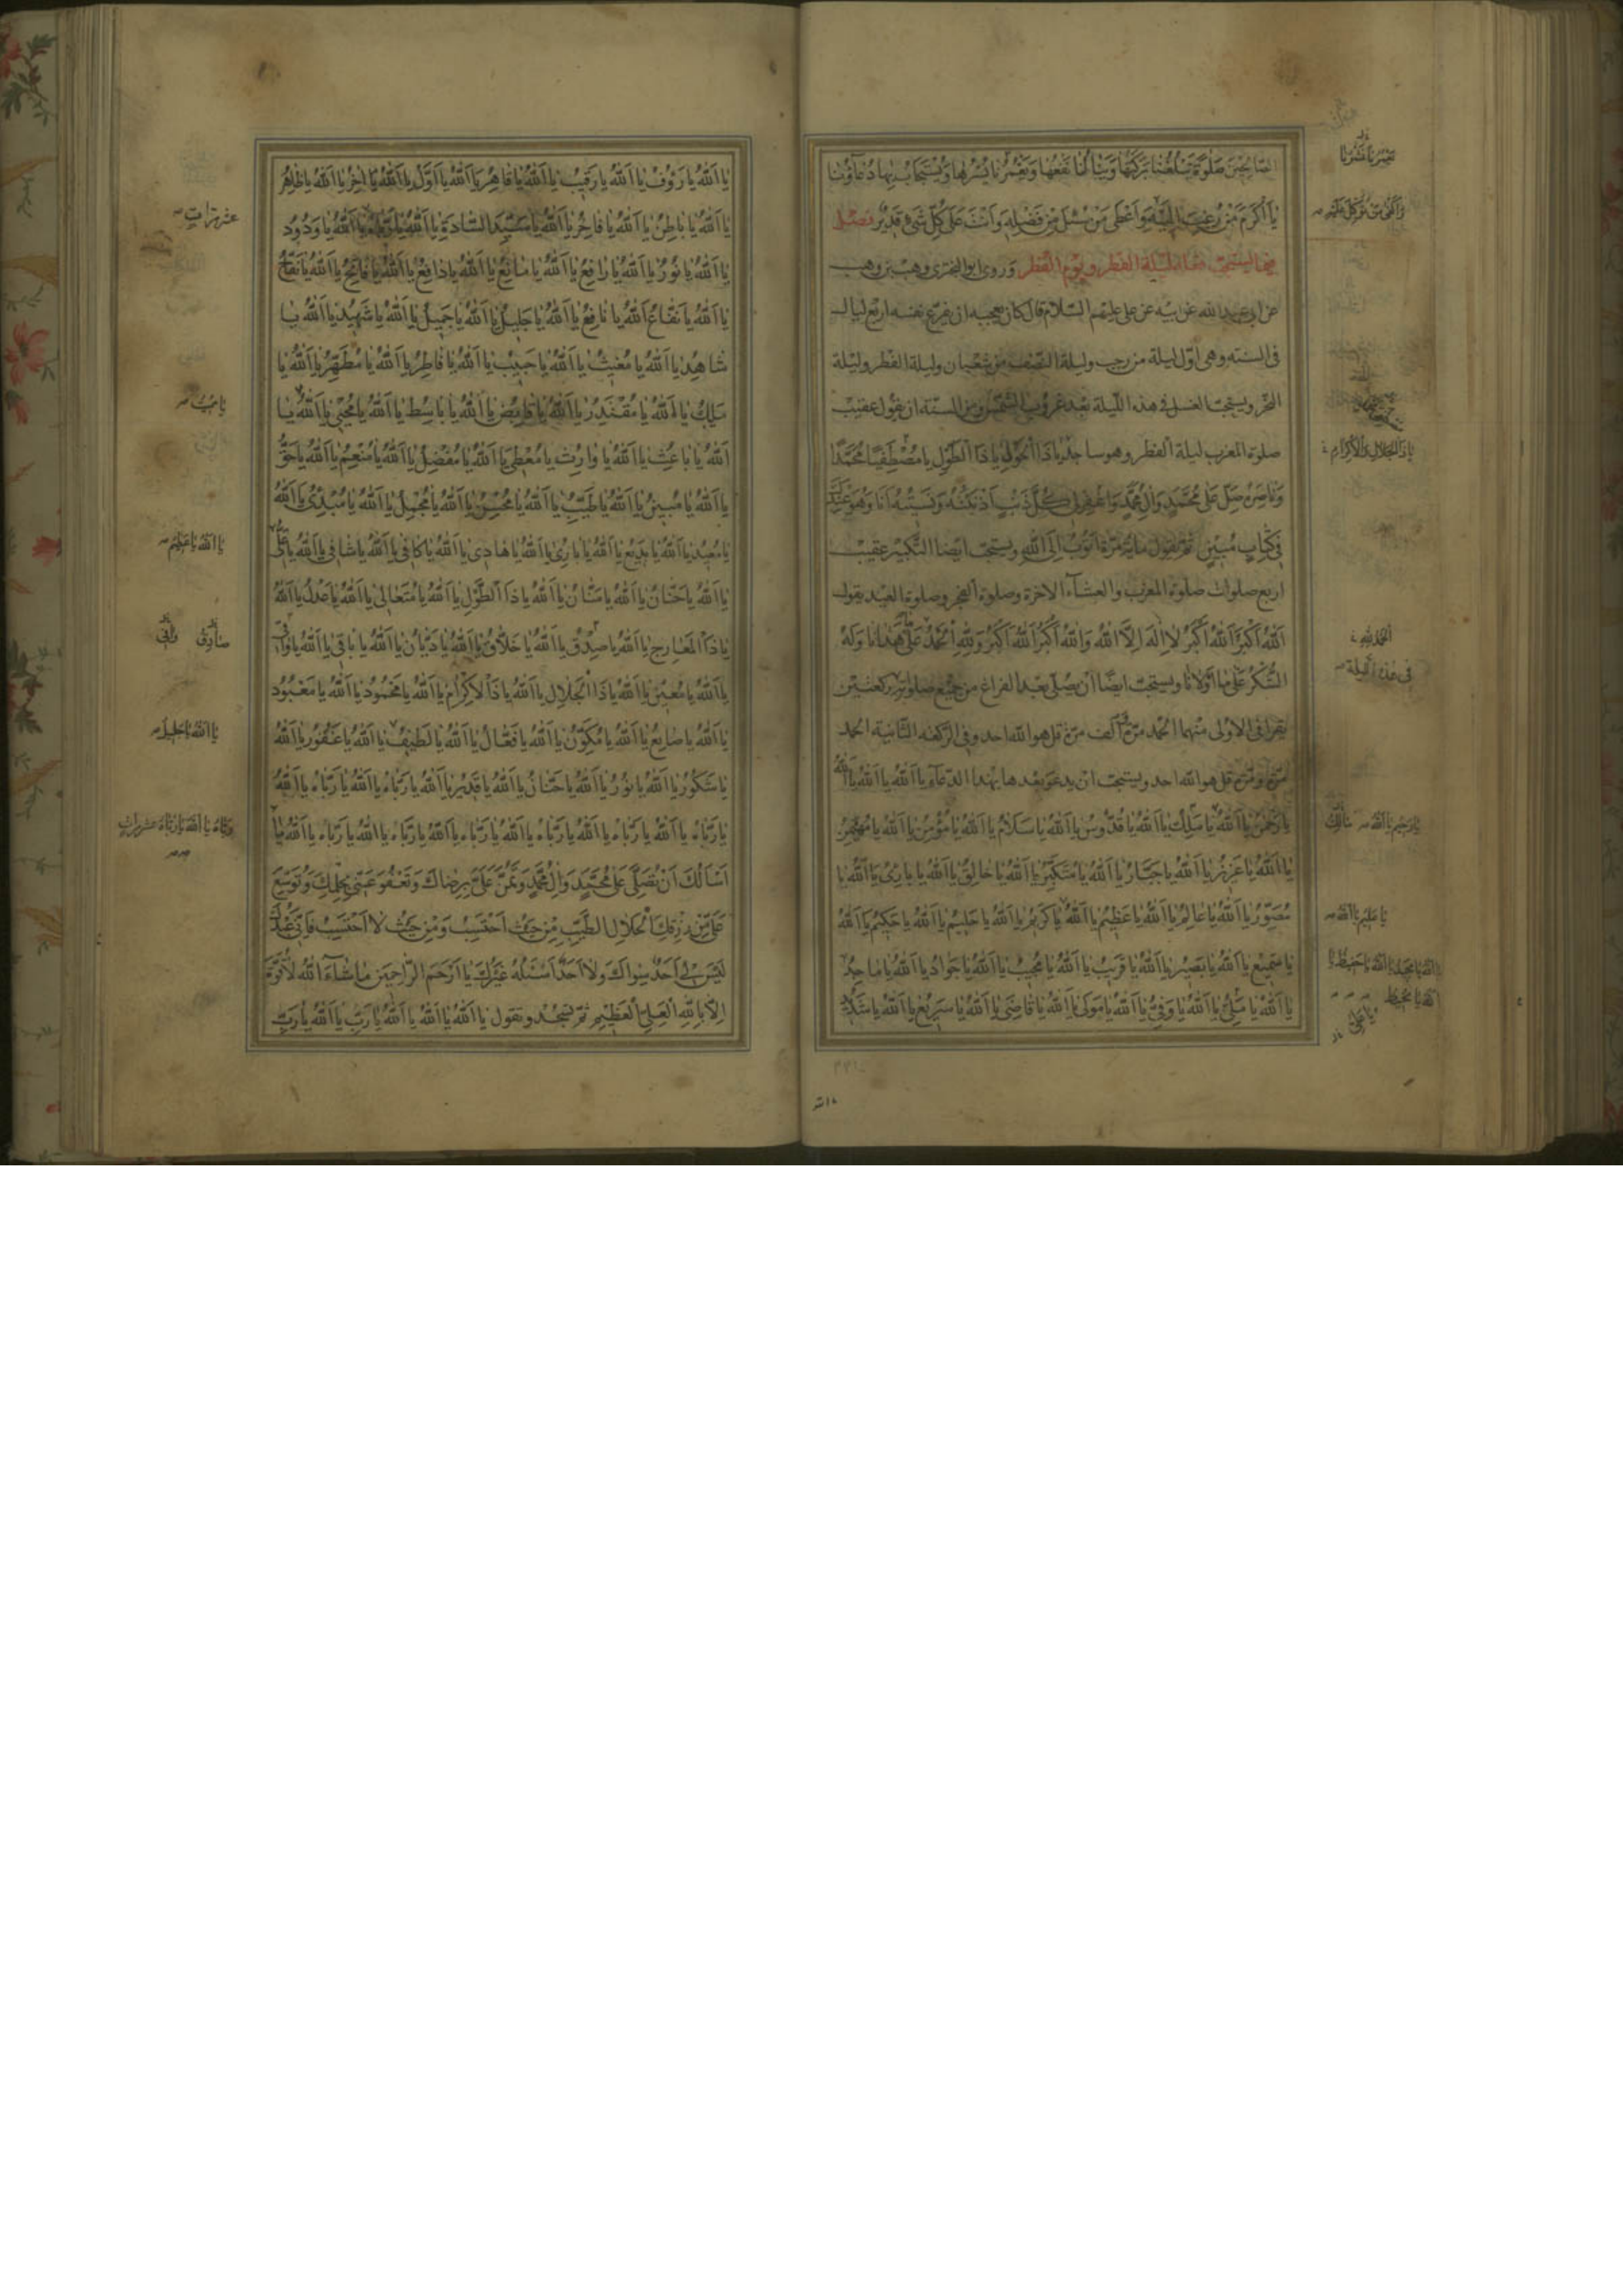 الصالحين صلوة تبلغنا بركتها وينالنا نفعها ويغمرنا يسرها ويستجاب بها دعاؤنا
يا اكرم من رغب اليه واعطى من سئل من فضله وانت على كل شئ قدير فصل
فيما يستحب فعله ليلة الفطر ويوم الفطر وروى ابو البخترى وهب بن وهب
عن ابى عبدالله عن ابيه عن على عليهم السلام قال كان يعجبه ان يفرغ نفسه اربع ليال
فى السنة وهى اول ليلة من رجب وليلة النصف من شعبان وليلة الفطر وليلة
النحر ويستحب الغسل فى هذه الليلة بعد غروب الشمس ومن السنة ان يقول عقيب
صلوة المغرب ليلة الفطر وهو ساجد يا ذا الحول يا ذا الطول يا مصطفيا محمدا
وناصره صل على محمد وال محمد واغفر لى كل ذنب اذنبته ونسيته انا وهو عندك
فى كتاب مبين ثم يقول مائة مرة اتوب الى الله ويستحب ايضا التكبير عقيب
اربع صلوات صلوة المغرب والعشاء الاخرة وصلوة الفجر وصلوة العيد يقول
الله اكبر الله اكبر لا اله الا الله والله اكبر الله اكبر ولله الحمد على ما هدانا وله
الشكر على ما اولانا ويستحب ايضا ان يصلى بعد الفراغ من جميع صلوته ركعتين
يقرأ فى الاولى منهما الحمد مرة الف مرة قل هو الله احد وفى الركعة الثانية الحمد
مرة ومرة قل هو الله احد ويستحب ان يدعو بعدها بهذا الدعاء يا الله يا الله يا الله
يا رحمن يا الله يا ملك يا الله يا قدوس يا الله يا سلام يا الله يا مؤمن يا الله يا مهيمن
يا الله يا عزيز يا الله يا جبار يا الله يا متكبر يا الله يا خالق يا الله يا بارئ يا الله يا
مصور يا الله يا عالم يا الله يا عظيم يا الله يا كريم يا الله يا حليم يا الله يا حكيم يا الله
يا سميع يا الله يا بصير يا الله يا قريب يا الله يا مجيب يا الله يا جواد يا الله يا ماجد
يا الله يا ملى يا الله يا وفى يا الله يا مولى يا الله يا قاضى يا الله يا سريع يا الله يا شديد
وافضل من توكل عليه
يا ذا الجلال والاكرام
الحمد لله
فى هذه الليلة
يا رحيم يا الله
مالك
يا عليم يا الله
يا الله يا مجيد يا الله يا حفيظ يا
الله يا محيط
يا الله
يا الله يا رؤف يا الله يا رقيب يا الله يا قاهر يا الله يا اول يا الله يا اخر يا الله يا ظاهر
يا الله يا باطن يا الله يا فاخر يا الله يا سيد السادة يا الله يا الله يا ودود
يا الله يا نور يا الله يا رافع يا الله يا مانع يا الله يا دافع يا الله يا فاتح يا الله يا نفاح
يا الله يا نفاع يا الله يا نافع يا الله يا جليل يا الله يا جميل يا الله يا شهيد يا الله يا
شاهد يا الله يا مغيث يا الله يا حبيب يا الله يا فاطر يا الله يا مطهر يا الله يا
مليك يا الله يا مقتدر يا الله يا قابض يا الله يا باسط يا الله يا محيى يا الله يا
الله يا باعث يا الله يا وارث يا معطى يا الله يا مفضل يا الله يا منعم يا الله يا حق
يا الله يا مبين يا الله يا طيب يا الله يا محسن يا الله يا مجمل يا الله يا مبدئ يا الله
يا معيد يا الله يا بديع يا الله يا بارئ يا الله يا هادى يا الله يا كافى يا الله يا شافى يا الله يا على
يا الله يا حنان يا الله يا منان يا الله يا ذا الطول يا الله يا متعالى يا الله يا عدل يا الله
يا ذا المعارج يا الله يا صدق يا الله يا خلاق يا الله يا ديان يا الله يا باقى يا الله يا واقى
يا الله يا معين يا الله يا ذا الجلال يا الله يا ذا الاكرام يا الله يا محمود يا الله يا معبود
يا الله يا صانع يا الله يا مكون يا الله يا فعال يا الله يا لطيف يا الله يا غفور يا الله
يا شكور يا الله يا نور يا الله يا حنان يا الله يا قدير يا الله يا رباه يا الله يا رباه يا الله
يا رباه يا الله يا رباه يا الله يا رباه يا الله يا رباه يا الله يا رباه يا الله يا رباه يا الله يا
اسألك ان تصلى على محمد وال محمد وتمن على برضاك وتعفو عنى بحلمك وتوسع
على من رزقك الحلال الطيب من حيث احتسب ومن حيث لا احتسب فانى عبدك
ليس لى احد سواك ولا احد اسئله غيرك يا ارحم الراحمين ما شاء الله لا قوة
الا بالله العلى العظيم ثم تسجد وتقول يا الله يا الله يا الله يا رب يا الله يا رب
عشر مرات
يا الله يا عظيم
صادق
يا الله يا جليل
رباه يا الله يا رباه عشر مرات